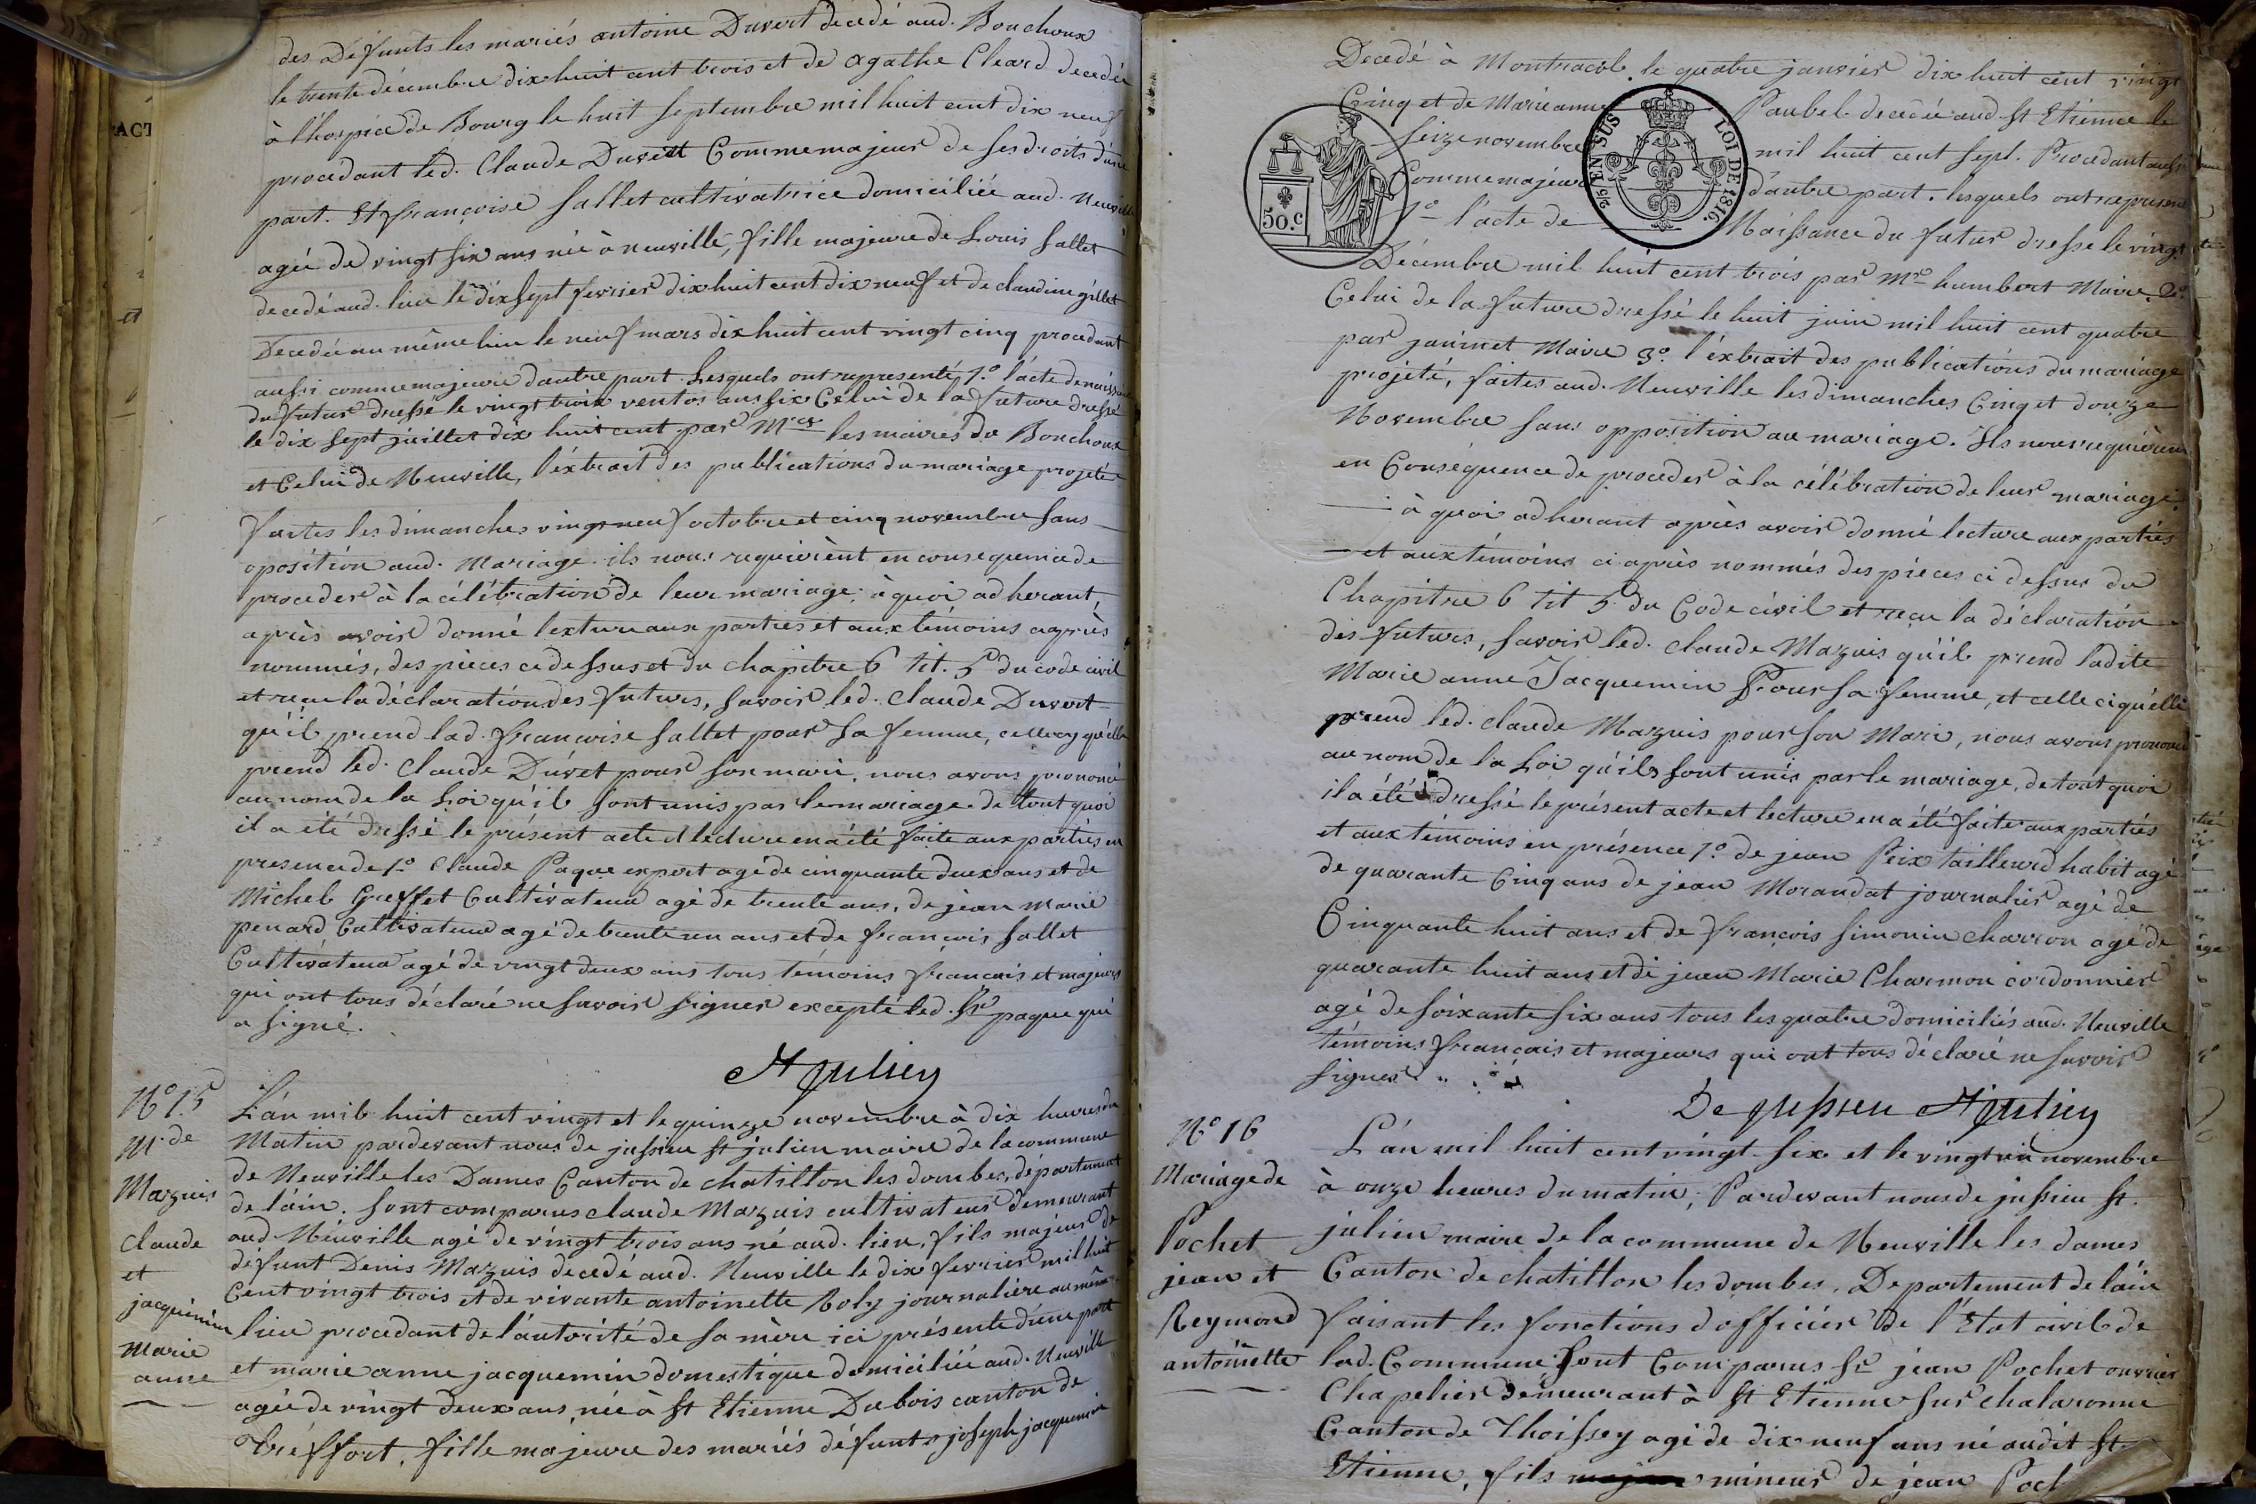 des Défunts les mariés antoine Duvert decedé aud. Bouchoux
le trente décembre dix huit cent trois et de agathe Cleard decedée
à l'hospice de Bourg le huit septembre mil huit cent dix neuf
procedant led. Claude Duvert Comme majeur de ses droits d'une
part. Et françoise Sallet cultivatrice domiciliée aud. Neuville
agée de vingt six ans née à neuville, fille majeure de Louis Sallet
decedé aud. lieu le dix sept fevrier dix huit cent dix neuf et de claudine gillet
Decedée au même lieu le neuf mars dix huit cent vingt cinq procedant
aussi comme majeure d'autre part. Lesquels ont representé 1.º l'acte de naissance
du futur dressé le vingt trois ventos ans six Celui de la future dressé
le dix sept juillet dix huit cent par M.rs les maires du Bouchoux
et Celui de Neuville, l'éxtrait des publications du mariage projeté
faites les dimanches vingt neuf octobre et cinq novembre sans
oposition aud. Mariage. ils nous requièrent en consequence de
proceder à la célébration de leur mariage; à quoi adherant,
après avoir donné lexture aux parties et aux témoins après
nommés, des pieces ce dessus et du chapitre 6 tit. 5 du code civil
et reçu la déclaration des futurs, savoir led. Claude Duvert
qu'il prend lad. francoise Sallet pour sa femme, celle cy qu'elle
prend led. Claude Duvet pour son mari, nous avons prononcé
au nom de la Loi qu'ils sont unis par le mariage. de tout quoi
il a été dressé le présent acte et lecture en a été faite aux parties en
presence de 1.º Claude Paque expert agé de cinquante deux ans et de
Michel Greffet Cultivateur agé de trente ans, de jean marie
penard Cultivateur agé de trente un ans et de françois Sallet
Cultivateur agé de vingt deux ans tous témoins francais et majeurs
qui ont tous déclaré ne savoir signer excepté led. Sr paque qui
a signé.
St Julien
Nº 15
M. de
Mazuis
claude
et
jacquemin
marie
anne
L'an mil huit cent vingt et le quinze novembre à dix heures du
Matin pardevant nous de jussieu st julien maire de la commune
de Neuville les Dames Canton de chatillon les dombes, département
de l'ain. Sont comparus claude Mazuis cultivateur demeurant
aud Neuville agé de vingt trois ans né aud. lieu, fils majeur de
défunt Denis Mazuis decedé aud. Neuville le dix fevrier mil huit
Cent vingt trois et de vivante antoinette Roly journalière au même
lieu procedant de l'autorité de sa mère ici présente d'une part
et marie anne jacquemin domestique domiciliée aud. Neuville
agée de vingt deux ans née à St Etienne Du bois canton de
Tréffort, fille majeure des mariés défunts joseph jacquemin
Decedé à Montracol le quatre janvier dix huit cent vingt
Cinq et de Marie anne Paubel decedée aud St Etienne le
seize novembre mil huit cent sept. Procedant aussi
Comme majeure d'autre part. lesquels ont representé
1º l'acte de Naissance du futur dressé le vingt
50.c
2/5 EN SUS
LOI DE 1816.
Décembre mil huit cent trois par Mre humbert Maire. 2º
Celui de la future dressé le huit juin mil huit cent quatre
par janinet Maire 3º l'éxtrait des publications du mariage
projeté, faites aud. Neuville les dimanches Cinq et douze
Novembre sans opposition au mariage. Ils nous requièrent
en Conséquence de proceder à la célébration de leur mariage.
à quoi adherant après avoir donné lecture aux parties
et aux témoins ci après nommés des pieces ci dessus du
Chapitre 6 tit 5 du Code civil et reçu la déclaration
des futurs, savoir led. claude Mazuis qu'il prend ladite
Marie anne Jacquemin Pour sa femme, et celle ci qu'elle
prend led. claude Mazuis pour son Mari, nous avons prononcé
au nom de la Loi qu'ils sont unis par le mariage, de tout quoi
il a été dressé le présent acte et lecture en a été faite aux parties
et aux témoins en présence 1.º de jean Peix tailleur d habit agé
de quarante Cinq ans de jean Morandat journalier agé de
Cinquante huit ans et de françois Simonin charron agé de
quarante huit ans et de jean Marie Charmon cordonnier
agé de soixante six ans tous les quatre domiciliés aud. Neuville
témoins français et majeurs qui ont tous déclaré ne savoir
signer
De Jussieu St Julien
Nº 16
Mariage de
Pochet
jean et
Reymond
antoinette
L'an mil huit cent vingt six et le vingt un novembre
à onze heures du matin; Pardevant nous de jussieu St.
julien maire de la commune de Neuville les dames
Canton de chatillon les dombes, Departement de l'ain
faisant les fonctions d officier de l'Etat civil de
lad. Commune; Sont Comparus Sr jean Pochet ouvrier
Chapelier demeurant à St Etienne sur chalaronne
Canton de Thoissey agé de dix neuf ans né audit St
Etienne, fils mineur de jean